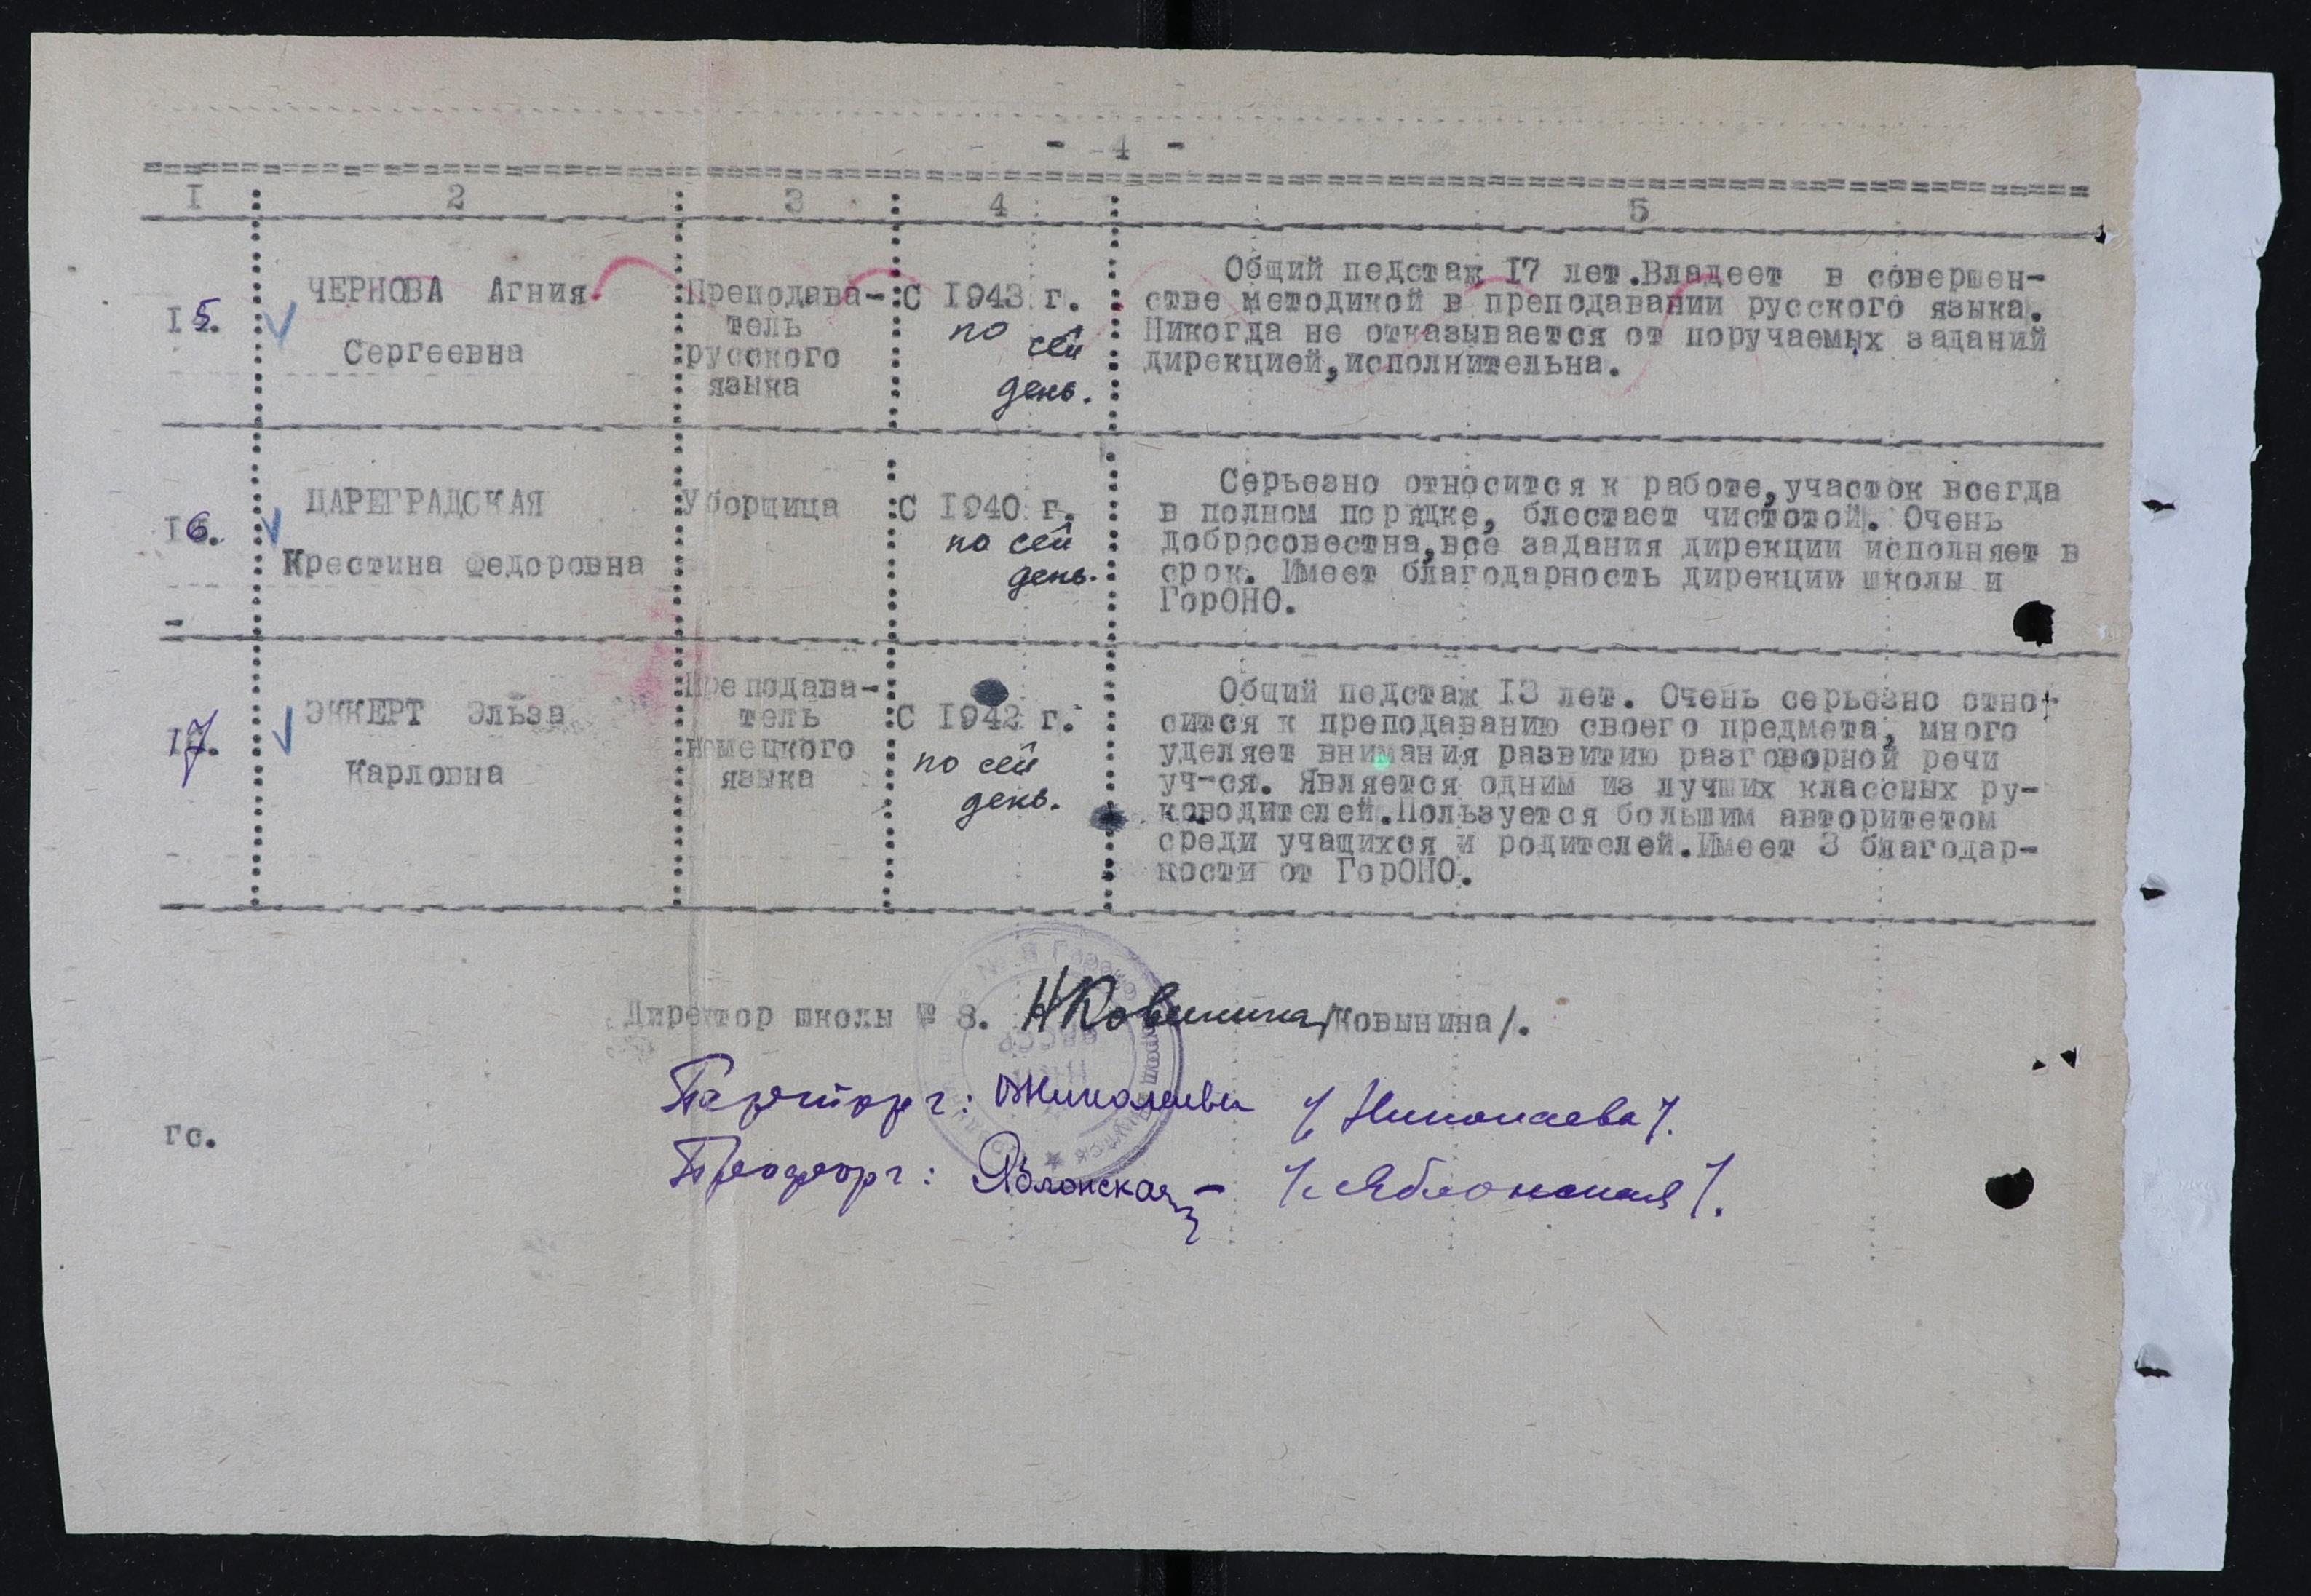 - 4 -
I 2 3 4 5
15. ЧЕРНОВА Агния
Сергеевна
Преподава-
тель
русского
языка
С 1943 г.
по сей
день.
Общий педстаж 17 лет.Владеет в совершен-
стве методикой в преподавании русского языка.
Никогда не отказывается от поручаемых заданий
дирекцией,исполнительна.
16. ЦАРЕГРАДСКАЯ
Крестина Федоровна
Уборщица
С 1940 г.
по сей
день.
Серьезно относится к работе,участок всегда
в полном порядке, блестает чистотой. Очень
добросовестна,все задания дирекции исполняет в
срок. Имеет благодарность дирекции школы и
ГорОНО.
17. ЭККЕРТ Эльза
Карловна
Преподава-
тель
немецкого
языка
С 1942 г.
по сей
день.
Общий педстаж 13 лет. Очень серьезно отно-
сится к преподаванию своего предмета, много
уделяет внимания развитию разговорной речи
уч-ся. Является одним из лучших классных ру-
ководителей.Пользуется большим авторитетом
среди учащихся и родителей.Имеет 3 благодар-
ности от ГорОНО.
Директор школы № 8. НКовынина /Ковынина/.
Парторг: Николаева /Николаева/.
гс.
Профорг: Яблонская /Яблонская/.